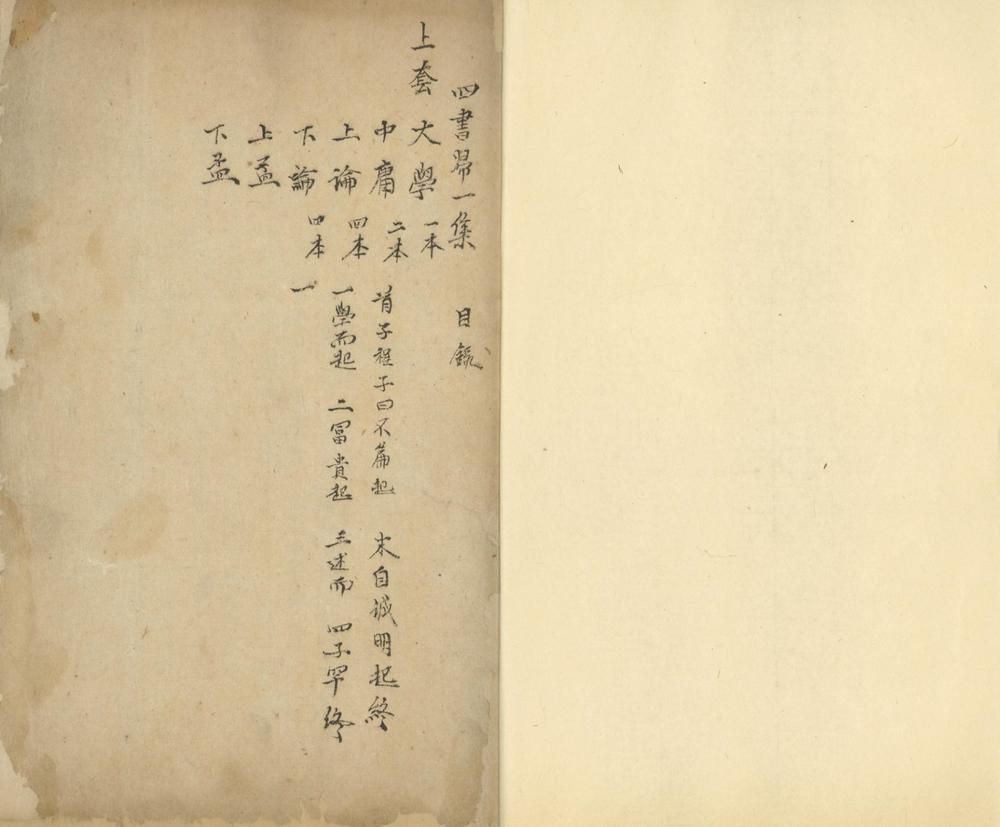 四書昴一集　目錄
上套　大學　一本
中庸　二本　首子程子曰不篇起　末自誠明起終
上論　四本　一學而起　二冨貴起　三述而　四子罕終
下論　四本　一
上孟
下孟